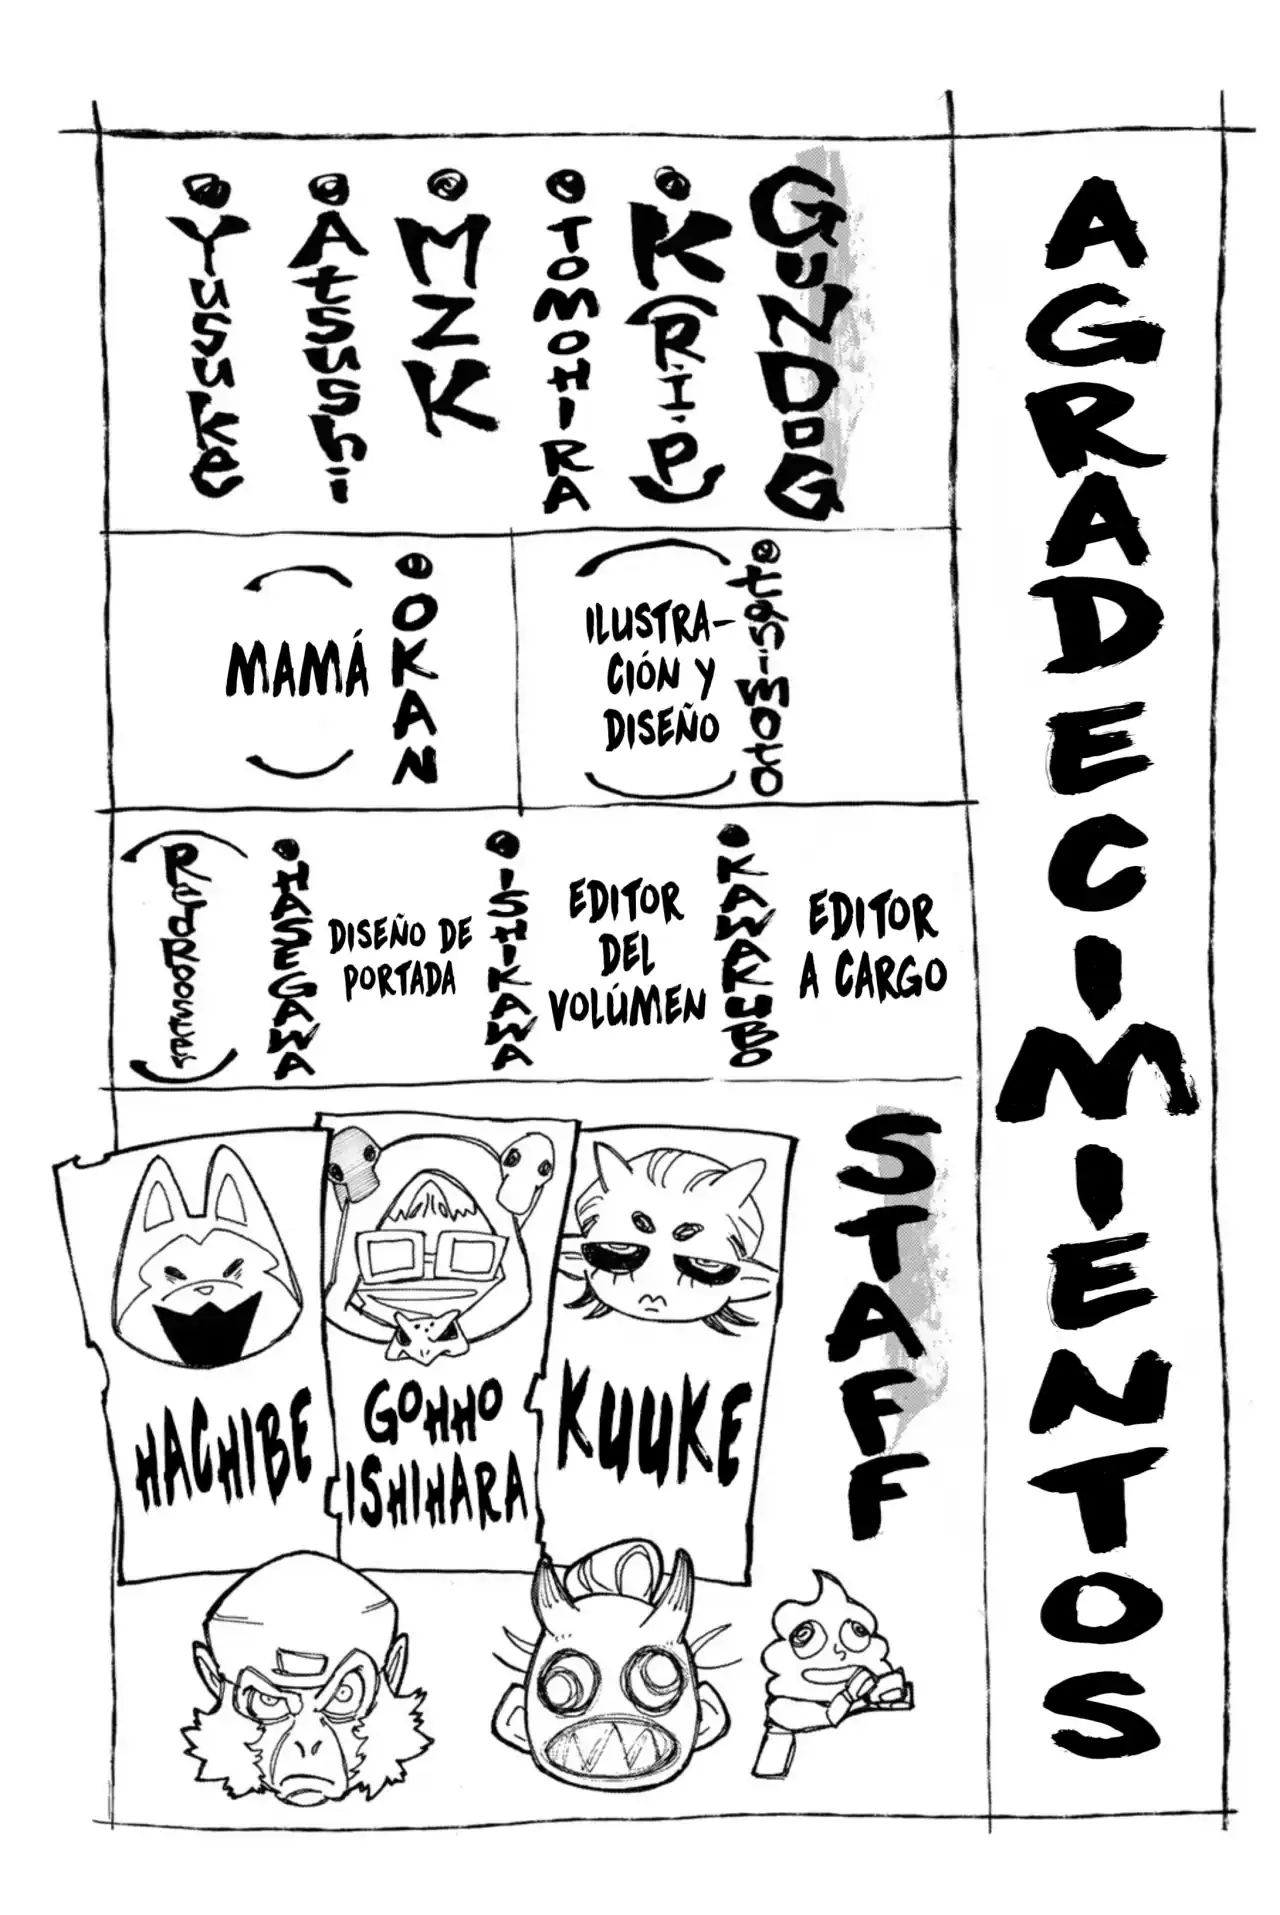 AGRADECIMIENTOS
GUNDOG
K (R.I.P)
TOMOHIRA
MZK
Atsushi
Yusuke
tanimoto
ILUSTRA-
CIÓN Y
DISEÑO
OKAN
(MAMÁ)
EDITOR
A CARGO
KAWAKUBO
EDITOR
DEL
VOLÚMEN
ISHIKAWA
DISEÑO DE
PORTADA
HASEGAWA
(RedRooster)
STAFF
KUUKE
GOHHO
ISHIHARA
HACHIBE